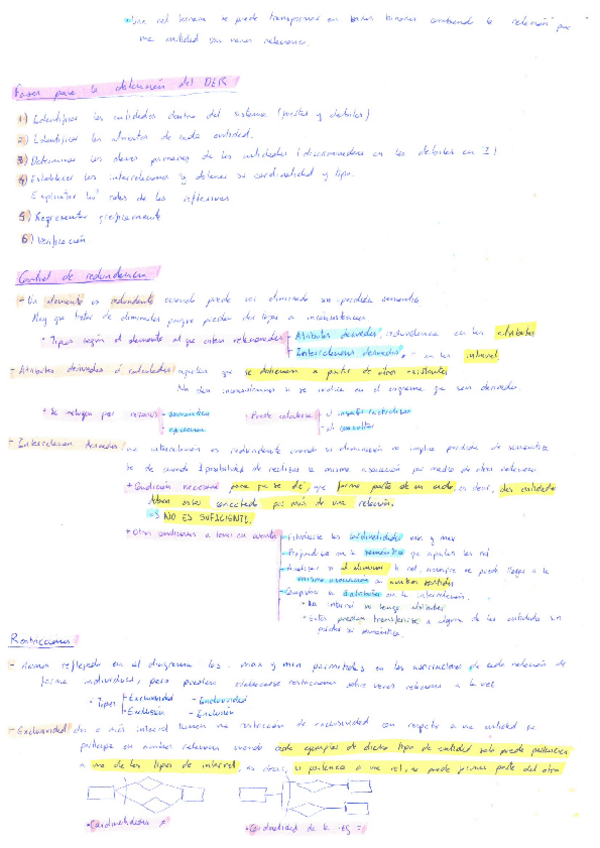 Una rel ternaria se puede transformar en varias binarias cambiando la relación por
una entidad con varias relaciones.
Fases para la obtención del DER
1) Identificar las entidades dentro del sistema (fuertes y débiles)
2) Identificar los atributos de cada entidad.
3) Determinar las claves primarias de las entidades (discriminadores en las débiles en I)
4) Establecer las interrelaciones y obtener su cardinalidad y tipo.
Explicitar los roles de las reflexivas
5) Representar gráficamente
6) Verificación
Control de redundancia
- Un elemento es redundante cuando puede ser eliminado sin pérdida semántica.
Hay que tratar de eliminarlos porque pueden dar lugar a inconsistencias.
• Tipos según el elemento al que estén relacionados
- Atributos derivados, redundancia en los atributos
- Interrelaciones derivadas, - en las interrel
- Atributos derivados o calculados aquellos que se obtienen a partir de otros existentes
No dan inconsistencias si se indica en el esquema que son derivados.
• Se incluyen por razones
- semántica
- eficiencia
• Puede calcularse
- al insertar/actualizar
- al consultar
- Interrelación derivada una interrelación es redundante cuando su eliminación no implica pérdida de semántica
Se da cuando probabilidad de realizar la misma asociación por medio de otra relaciones
• Condición necesaria para que se dé, que forme parte de un ciclo, es decir, dos entidades
deben estar conectadas por más de una relación.
NO ES SUFICIENTE.
• Otras condiciones a tener en cuenta
- Estudiarse las cardinalidades max y min
- Profundizar en la semántica que aportan las rel
- Analizar si al eliminar la rel, siempre se puede llegar a la
misma asociación en ambos sentidos
- Comprobar si atributos en la interrelación.
• La interrel no tenga atributos
• Estos puedan transferirse a alguna de las entidades sin
perder su semántica.
Restricciones
- Hemos reflejado en el diagrama los max y min permitidos en las asociaciones de cada relación de
forma individual, pero pueden establecerse restricciones sobre varias relaciones a la vez
• Tipos
- Exclusividad
- Exclusión
- Inclusividad
- Inclusión
- Exclusividad dos o más interrel tienen una restricción de exclusividad con respecto a una entidad que
participa en ambas relaciones cuando cada ejemplar de dicho tipo de entidad solo puede pertenecer
a uno de los tipos de interrel, es decir, si pertenece a una rel, no puede formar parte del otro
• Cardinalidades ≠
• Cardinalidad de la